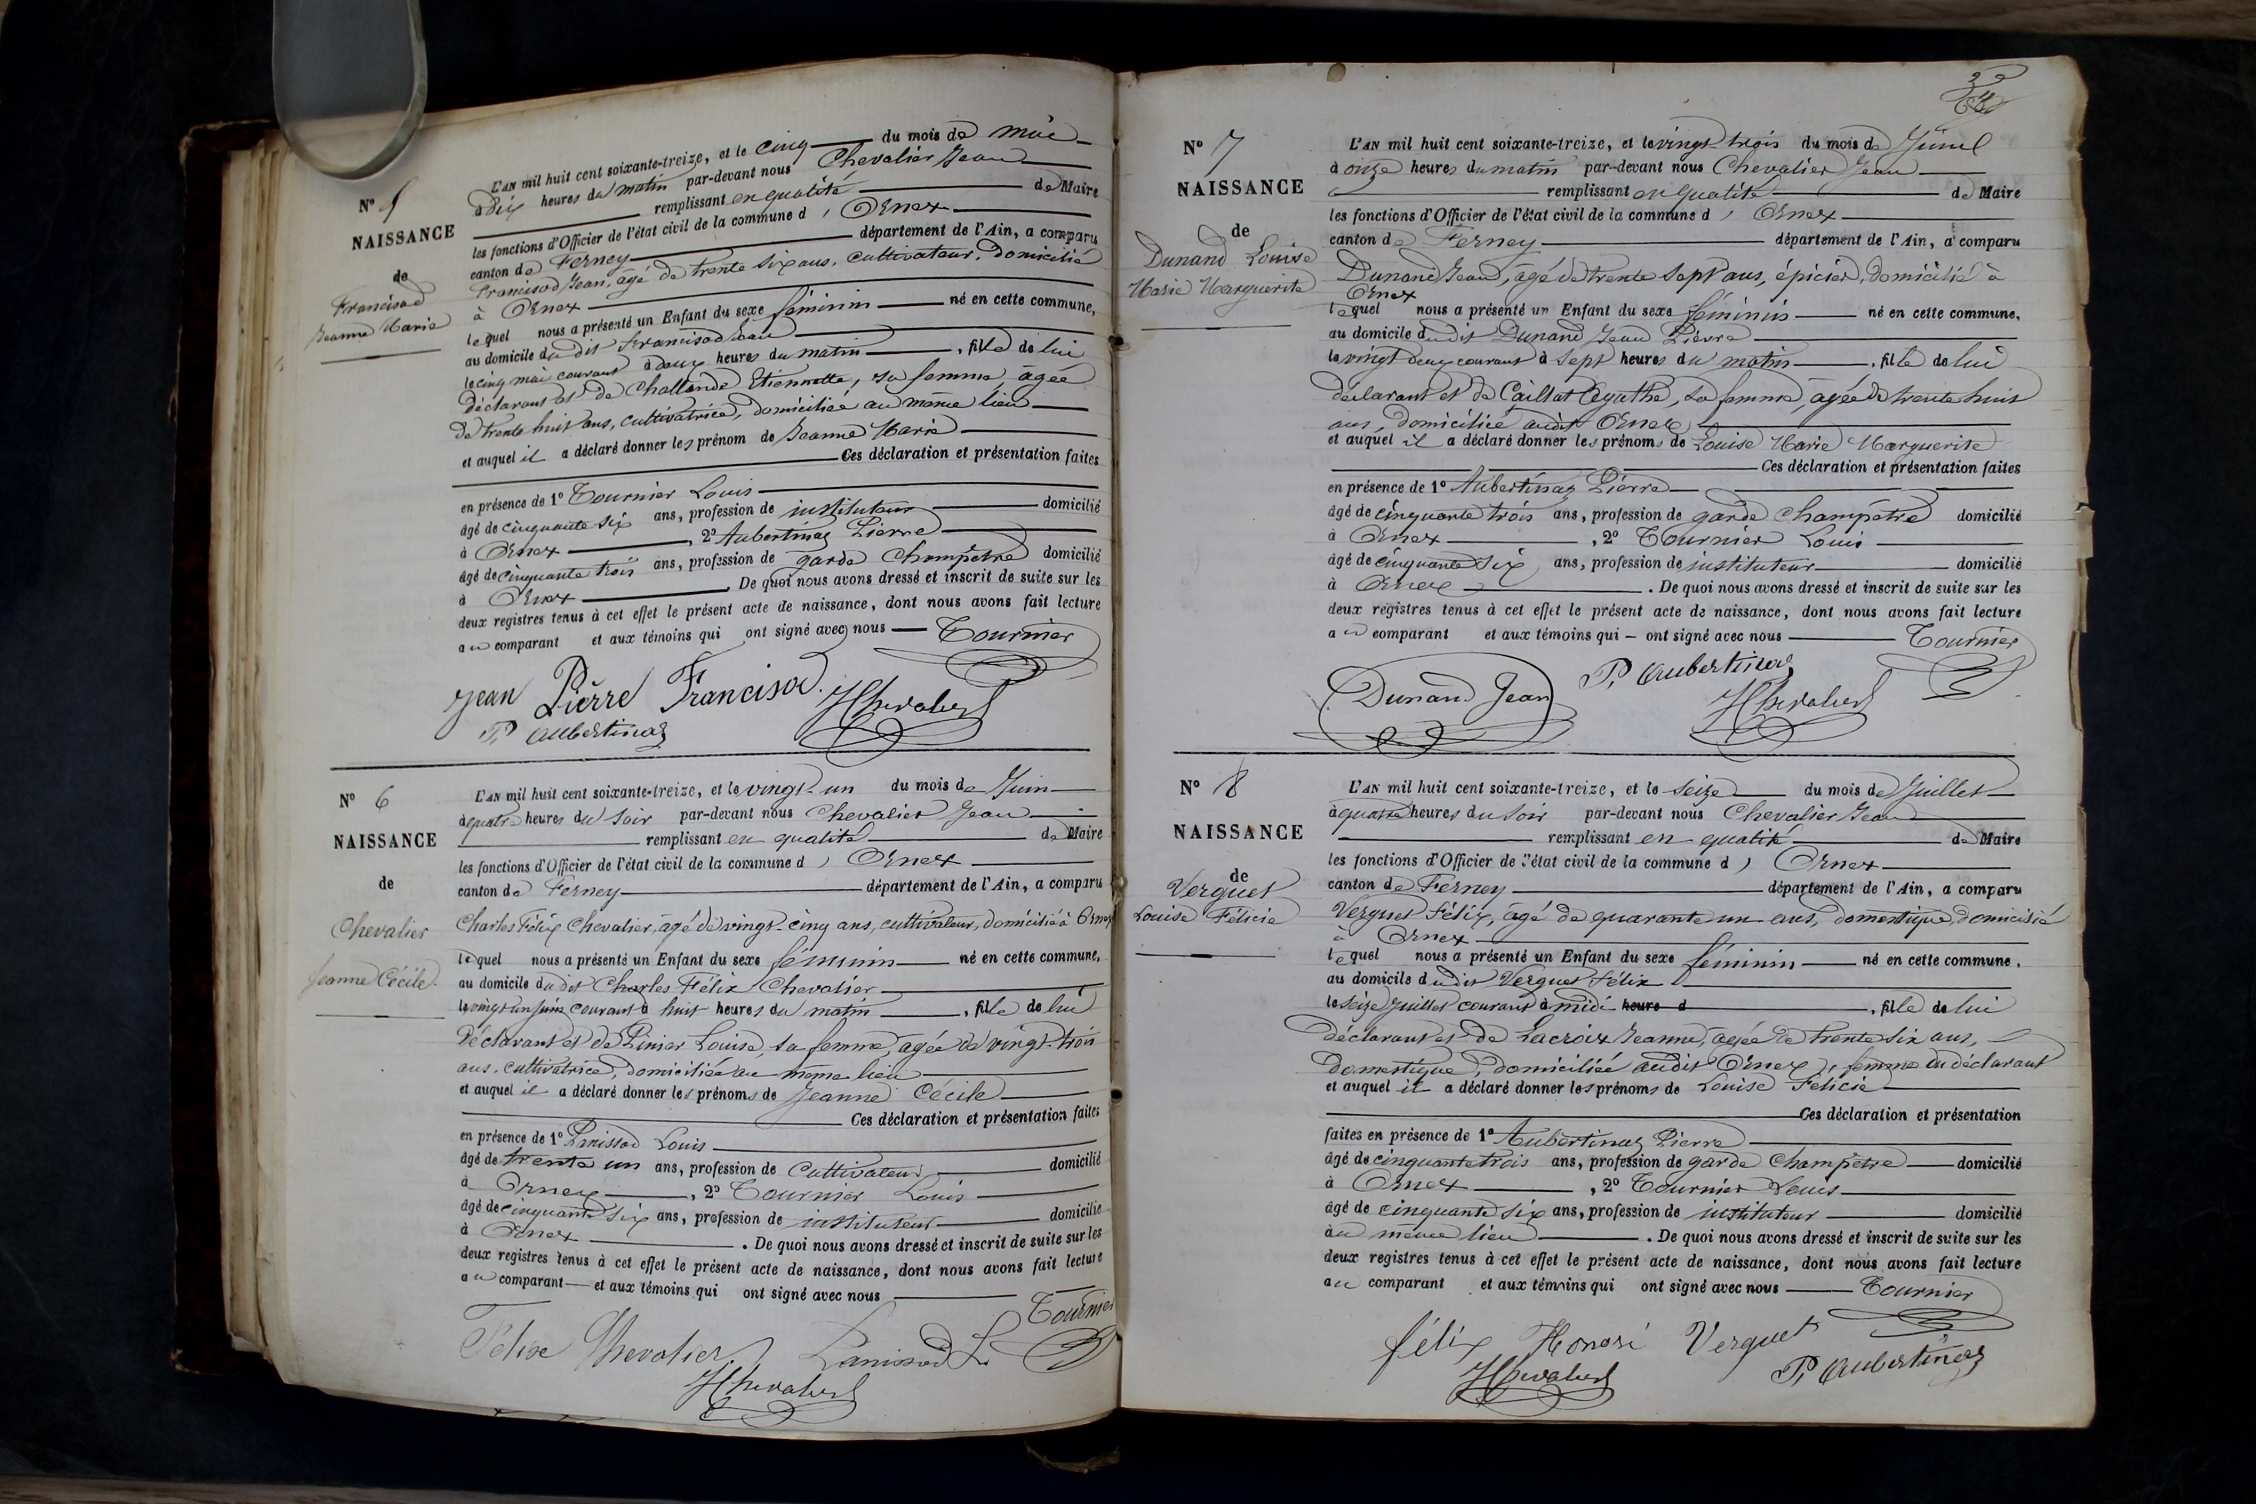 N° 5
NAISSANCE
de
Francisod
Jeanne Marie
L'AN mil huit cent soixante-treize, et le cinq du mois de mai
à dix heures du matin par-devant nous Chevalier Jean
remplissant en qualité de Maire
les fonctions d'Officier de l'état civil de la commune d' Ornex
canton de Ferney département de l'Ain, a comparu
Francisod Jean, âgé de trente six ans, cultivateur, domicilié
à Ornex
lequel nous a présenté un Enfant du sexe féminin né en cette commune,
au domicile du dit Francisod Jean
le cinq mai courant à deux heures du matin, fille de lui
déclarant et de Challande Etiennette, sa femme âgée
de trente huit ans, cultivatrice, domiciliée au même lieu
et auquel il a déclaré donner les prénom de Jeanne Marie
Ces déclaration et présentation faites
en présence de 1° Tournier Louis
âgé de cinquante six ans, profession de instituteur domicilié
à Ornex, 2° Aubertinaz Pierre
âgé de cinquante trois ans, profession de garde champêtre domicilié
à Ornex. De quoi nous avons dressé et inscrit de suite sur les
deux registres tenus à cet effet le présent acte de naissance, dont nous avons fait lecture
au comparant et aux témoins qui ont signé avec nous Tournier
Jean Pierre Francisod. JChevalier
P. Aubertinaz
N° 6
NAISSANCE
de
Chevalier
Jeanne Cécile
L'AN mil huit cent soixante-treize, et le vingt-un du mois de Juin
à quatre heures du soir par-devant nous Chevalier Jean
remplissant en qualité de Maire
les fonctions d'Officier de l'état civil de la commune d' Ornex
canton de Ferney département de l'Ain, a comparu
Charles Félix Chevalier, âgé de vingt-cinq ans, cultivateur, domicilié à Ornex
lequel nous a présenté un Enfant du sexe féminin né en cette commune,
au domicile du dit Charles Félix Chevalier
le vingt un juin courant à huit heures du matin, fille de lui
déclarant et de Pinier Louise, sa femme, âgée de vingt-trois
ans, cultivatrice, domiciliée au même lieu
et auquel il a déclaré donner les prénoms de Jeanne Cécile
Ces déclaration et présentation faites
en présence de 1° Panissod Louis
âgé de trente un ans, profession de cultivateur domicilié
à Ornex, 2° Tournier Louis
âgé de cinquante six ans, profession de instituteur domicilié
à Ornex. De quoi nous avons dressé et inscrit de suite sur les
deux registres tenus à cet effet le présent acte de naissance, dont nous avons fait lecture
au comparant et aux témoins qui ont signé avec nous
Tournier
Félix Chevalier Panissod L.
JChevalier
N° 7
NAISSANCE
de
Dunand Louise
Marie Marguerite
L'AN mil huit cent soixante-treize, et le vingt trois du mois de Juin
à onze heures du matin par-devant nous Chevalier Jean
remplissant en qualité de Maire
les fonctions d'Officier de l'état civil de la commune d' Ornex
canton de Ferney département de l'Ain, a comparu
Dunand Jean, âgé de trente sept ans, épicier, domicilié à
Ornex
lequel nous a présenté un Enfant du sexe féminin né en cette commune,
au domicile dudit Dunand Jean Pierre
le vingt deux courant à sept heures du matin, fille de lui
déclarant et de Caillat Agathe, sa femme, âgée de trente huit
ans, domiciliée audit Ornex
et auquel il a déclaré donner les prénoms de Louise Marie Marguerite
Ces déclaration et présentation faites
en présence de 1° Aubertinaz Pierre
âgé de cinquante trois ans, profession de garde champêtre domicilié
à Ornex, 2° Tournier Louis
âgé de cinquante six ans, profession de instituteur domicilié
à Ornex. De quoi nous avons dressé et inscrit de suite sur les
deux registres tenus à cet effet le présent acte de naissance, dont nous avons fait lecture
au comparant et aux témoins qui ont signé avec nous Tournier
Dunand Jean P. Aubertinaz
JChevalier
N° 8
NAISSANCE
de
Verguet
Louise Félicie
L'AN mil huit cent soixante-treize, et le seize du mois de Juillet
à quatre heures du soir par-devant nous Chevalier Jean
remplissant en qualité de Maire
les fonctions d'Officier de l'état civil de la commune d' Ornex
canton de Ferney département de l'Ain, a comparu
Verguet Félix, âgé de quarante un ans, domestique, domicilié
à Ornex
lequel nous a présenté un Enfant du sexe féminin né en cette commune,
au domicile dudit Verguet Félix
le seize juillet courant à midi heure d, fille de lui
déclarant et de Lacroix Jeanne, âgée de trente six ans,
domestique, domiciliée audit Ornex, femme du déclarant
et auquel il a déclaré donner les prénoms de Louise Félicie
Ces déclaration et présentation
faites en présence de 1° Aubertinaz Pierre
âgé de cinquante trois ans, profession de garde champêtre domicilié
à Ornex, 2° Tournier Louis
âgé de cinquante six ans, profession de instituteur domicilié
au même lieu. De quoi nous avons dressé et inscrit de suite sur les
deux registres tenus à cet effet le présent acte de naissance, dont nous avons fait lecture
au comparant et aux témoins qui ont signé avec nous Tournier
félix Honoré Verguet
JChevalier P. Aubertinaz